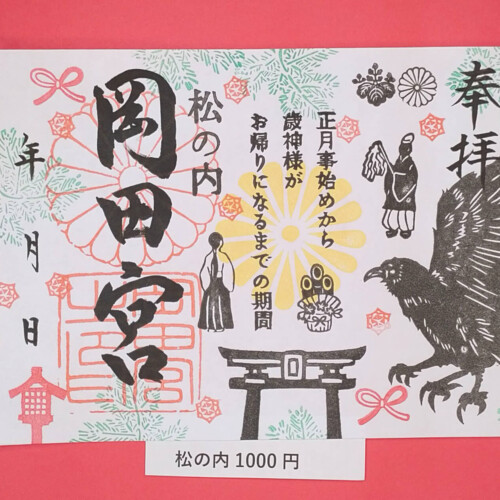 奉拝
正月事始めから
歳神様が
お帰りになるまでの期間
松の内
岡田宮
年 月 日
松の内 1000 円